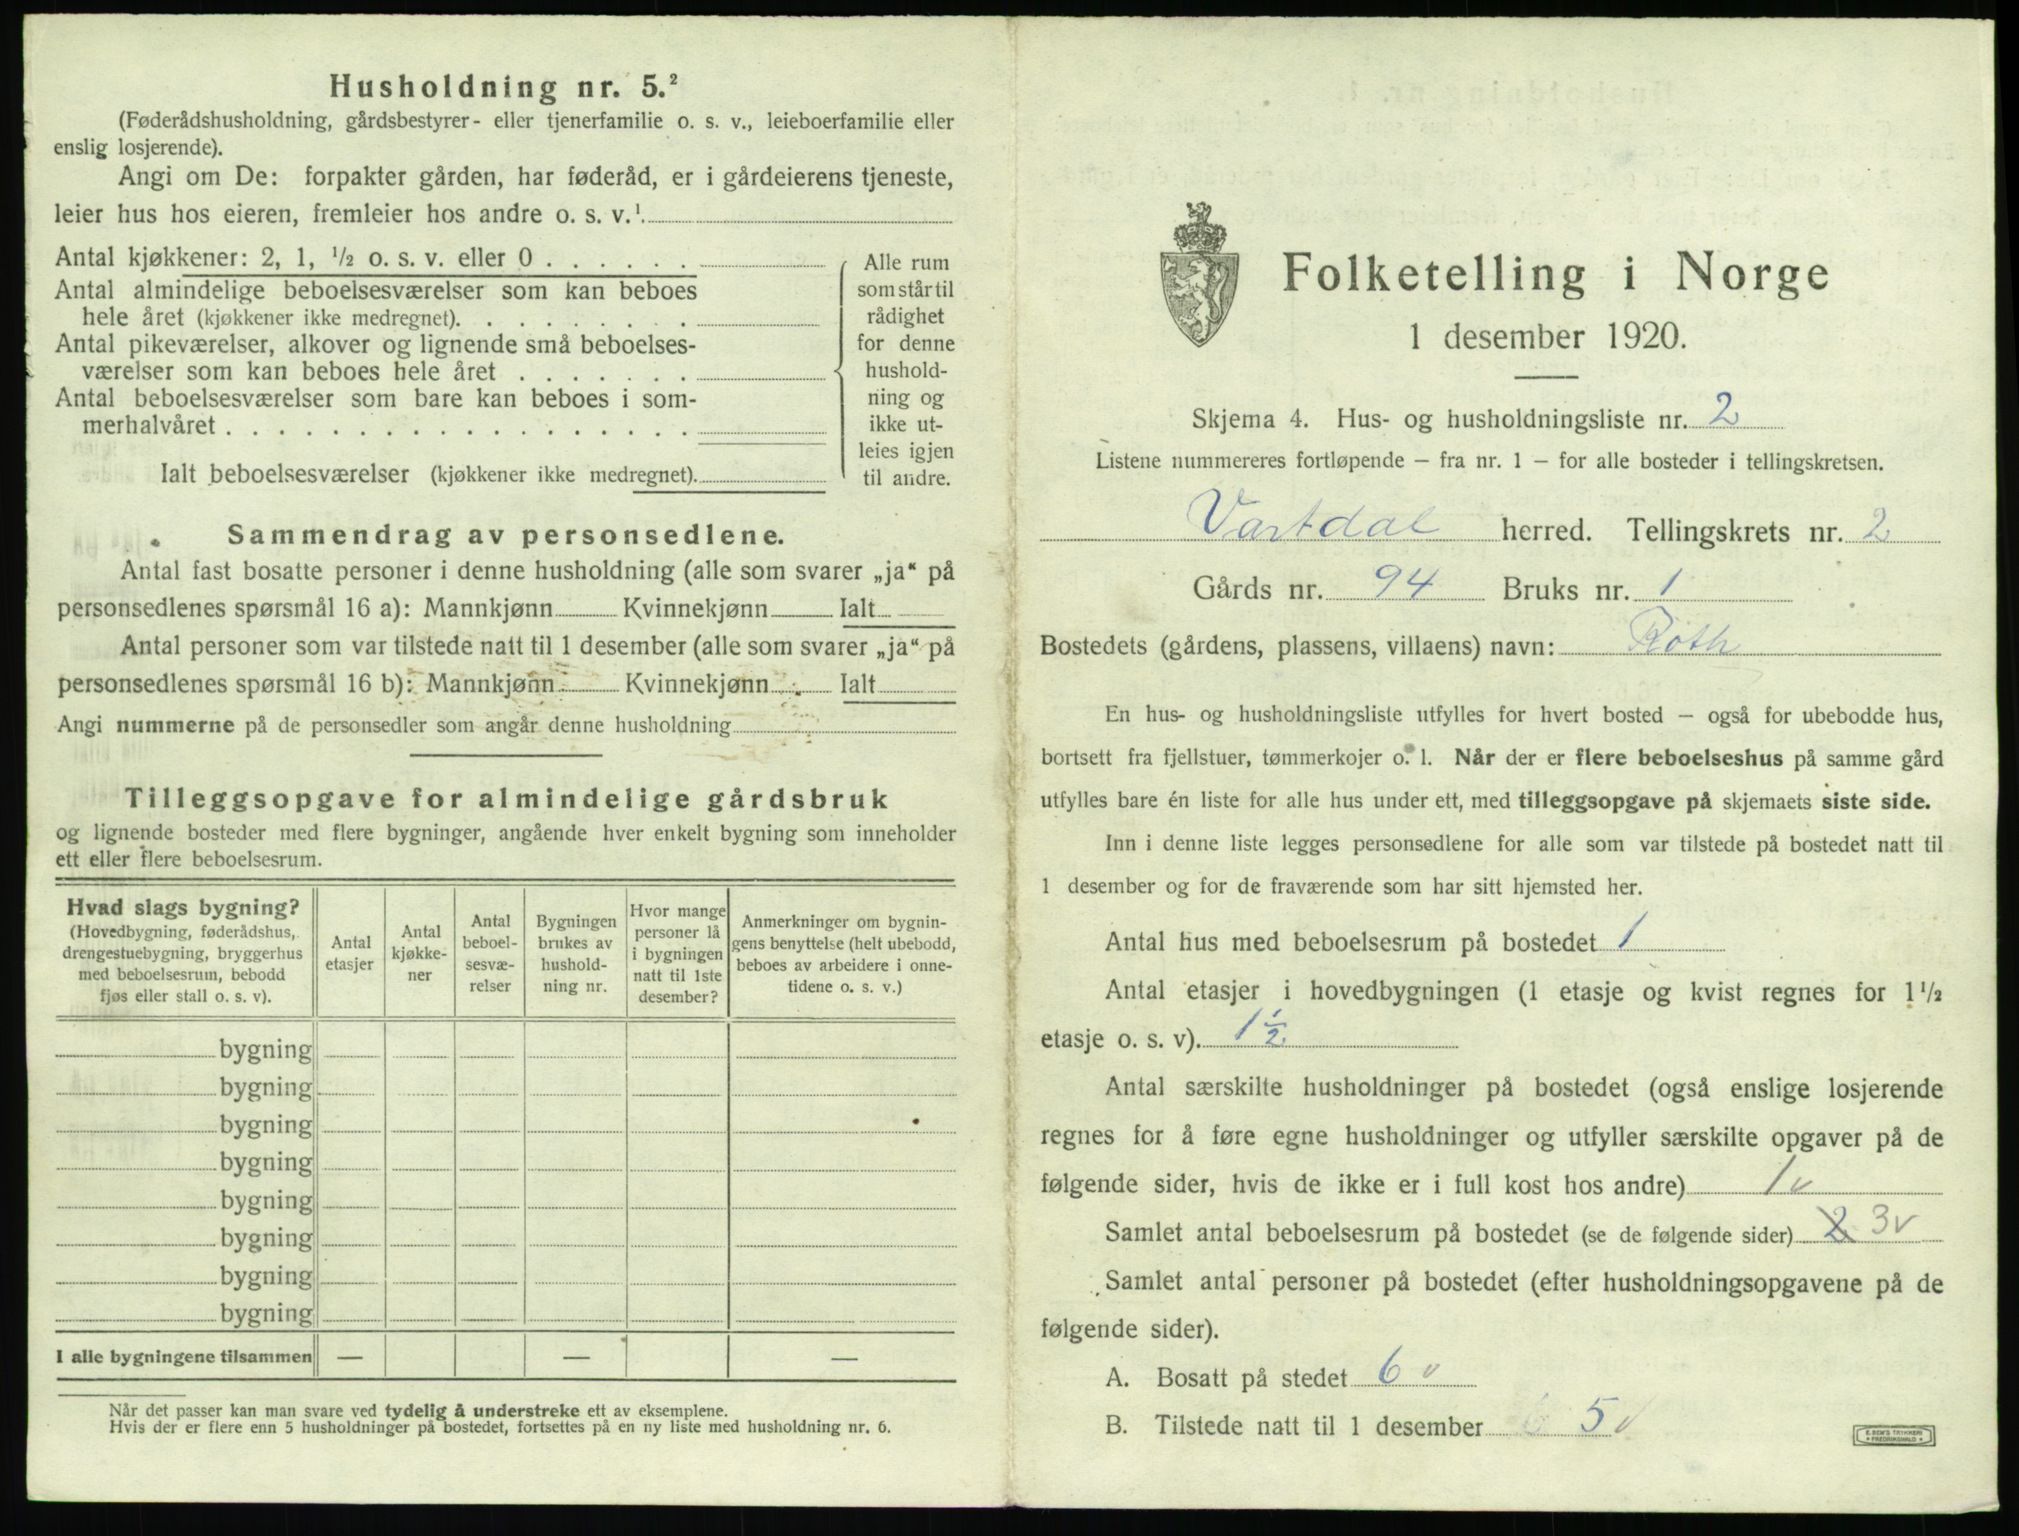 Husholdning nr. 5.²
(Føderådshusholdning, gårdsbestyrer- eller tjenerfamilie o. s. v., leieboerfamilie eller
enslig losjerende).
Angi om De: forpakter gården, har føderåd, er i gårdeierens tjeneste,
leier hus hos eieren, fremleier hos andre o. s. v.¹
Antal kjøkkener: 2, 1, ½ o. s. v. eller 0
Antal almindelige beboelsesværelser som kan beboes
hele året (kjøkkener ikke medregnet).
Antal pikeværelser, alkover og lignende små beboelses-
værelser som kan beboes hele året
Antal beboelsesværelser som bare kan beboes i som-
merhalvåret
Ialt beboelsesværelser (kjøkkener ikke medregnet).
Alle rum
som står til
rådighet
for denne
hushold-
ning og
ikke ut-
leies igjen
til andre.
Sammendrag av personsedlene.
Antal fast bosatte personer i denne husholdning (alle som svarer „ja“ på
personsedlenes spørsmål 16 a): Mannkjønn Kvinnekjønn Ialt
Antal personer som var tilstede natt til 1 desember (alle som svarer „ja“ på
personsedlenes spørsmål 16 b): Mannkjønn Kvinnekjønn Ialt
Angi nummerne på de personsedler som angår denne husholdning
Tilleggsopgave for almindelige gårdsbruk
og lignende bosteder med flere bygninger, angående hver enkelt bygning som inneholder
ett eller flere beboelsesrum.
Hvad slags bygning?
(Hovedbygning, føderådshus,
drengestuebygning, bryggerhus
med beboelsesrum, bebodd
fjøs eller stall o. s. v).
Antal
etasjer
Antal
kjøkke-
ner
Antal
beboel-
sesvæ-
relser
Bygningen
brukes av
hushold-
ning nr.
Hvor mange
personer lå
i bygningen
natt til 1ste
desember?
Anmerkninger om bygnin-
gens benyttelse (helt ubebodd,
beboes av arbeidere i onne-
tidene o. s. v.)
bygning
bygning
bygning
bygning
bygning
bygning
bygning
bygning
I alle bygningene tilsammen — — —
Når det passer kan man svare ved tydelig å understreke ett av eksemplene.
Hvis der er flere enn 5 husholdninger på bostedet, fortsettes på en ny liste med husholdning nr. 6.
Folketelling i Norge
1 desember 1920.
Skjema 4. Hus- og husholdningsliste nr. 2
Listene nummereres fortløpende — fra nr. 1 — for alle bosteder i tellingskretsen.
Vartdal herred. Tellingskrets nr. 2
Gårds nr. 94 Bruks nr. 1
Bostedets (gårdens, plassens, villaens) navn: Roth
En hus- og husholdningsliste utfylles for hvert bosted — også for ubebodde hus,
bortsett fra fjellstuer, tømmerkojer o. l. Når der er flere beboelseshus på samme gård
utfylles bare én liste for alle hus under ett, med tilleggsopgave på skjemaets siste side.
Inn i denne liste legges personsedlene for alle som var tilstede på bostedet natt til
1 desember og for de fraværende som har sitt hjemsted her.
Antal hus med beboelsesrum på bostedet 1
Antal etasjer i hovedbygningen (1 etasje og kvist regnes for 1½
etasje o. s. v). 1½
Antal særskilte husholdninger på bostedet (også enslige losjerende
regnes for å føre egne husholdninger og utfyller særskilte opgaver på de
følgende sider, hvis de ikke er i full kost hos andre) 1 v
Samlet antal beboelsesrum på bostedet (se de følgende sider) 2 3 v
Samlet antal personer på bostedet (efter husholdningsopgavene på de
følgende sider).
A. Bosatt på stedet 6 v
B. Tilstede natt til 1 desember 6 5 v
E. SEM'S TRYKKERI
FREDRIKSHALD